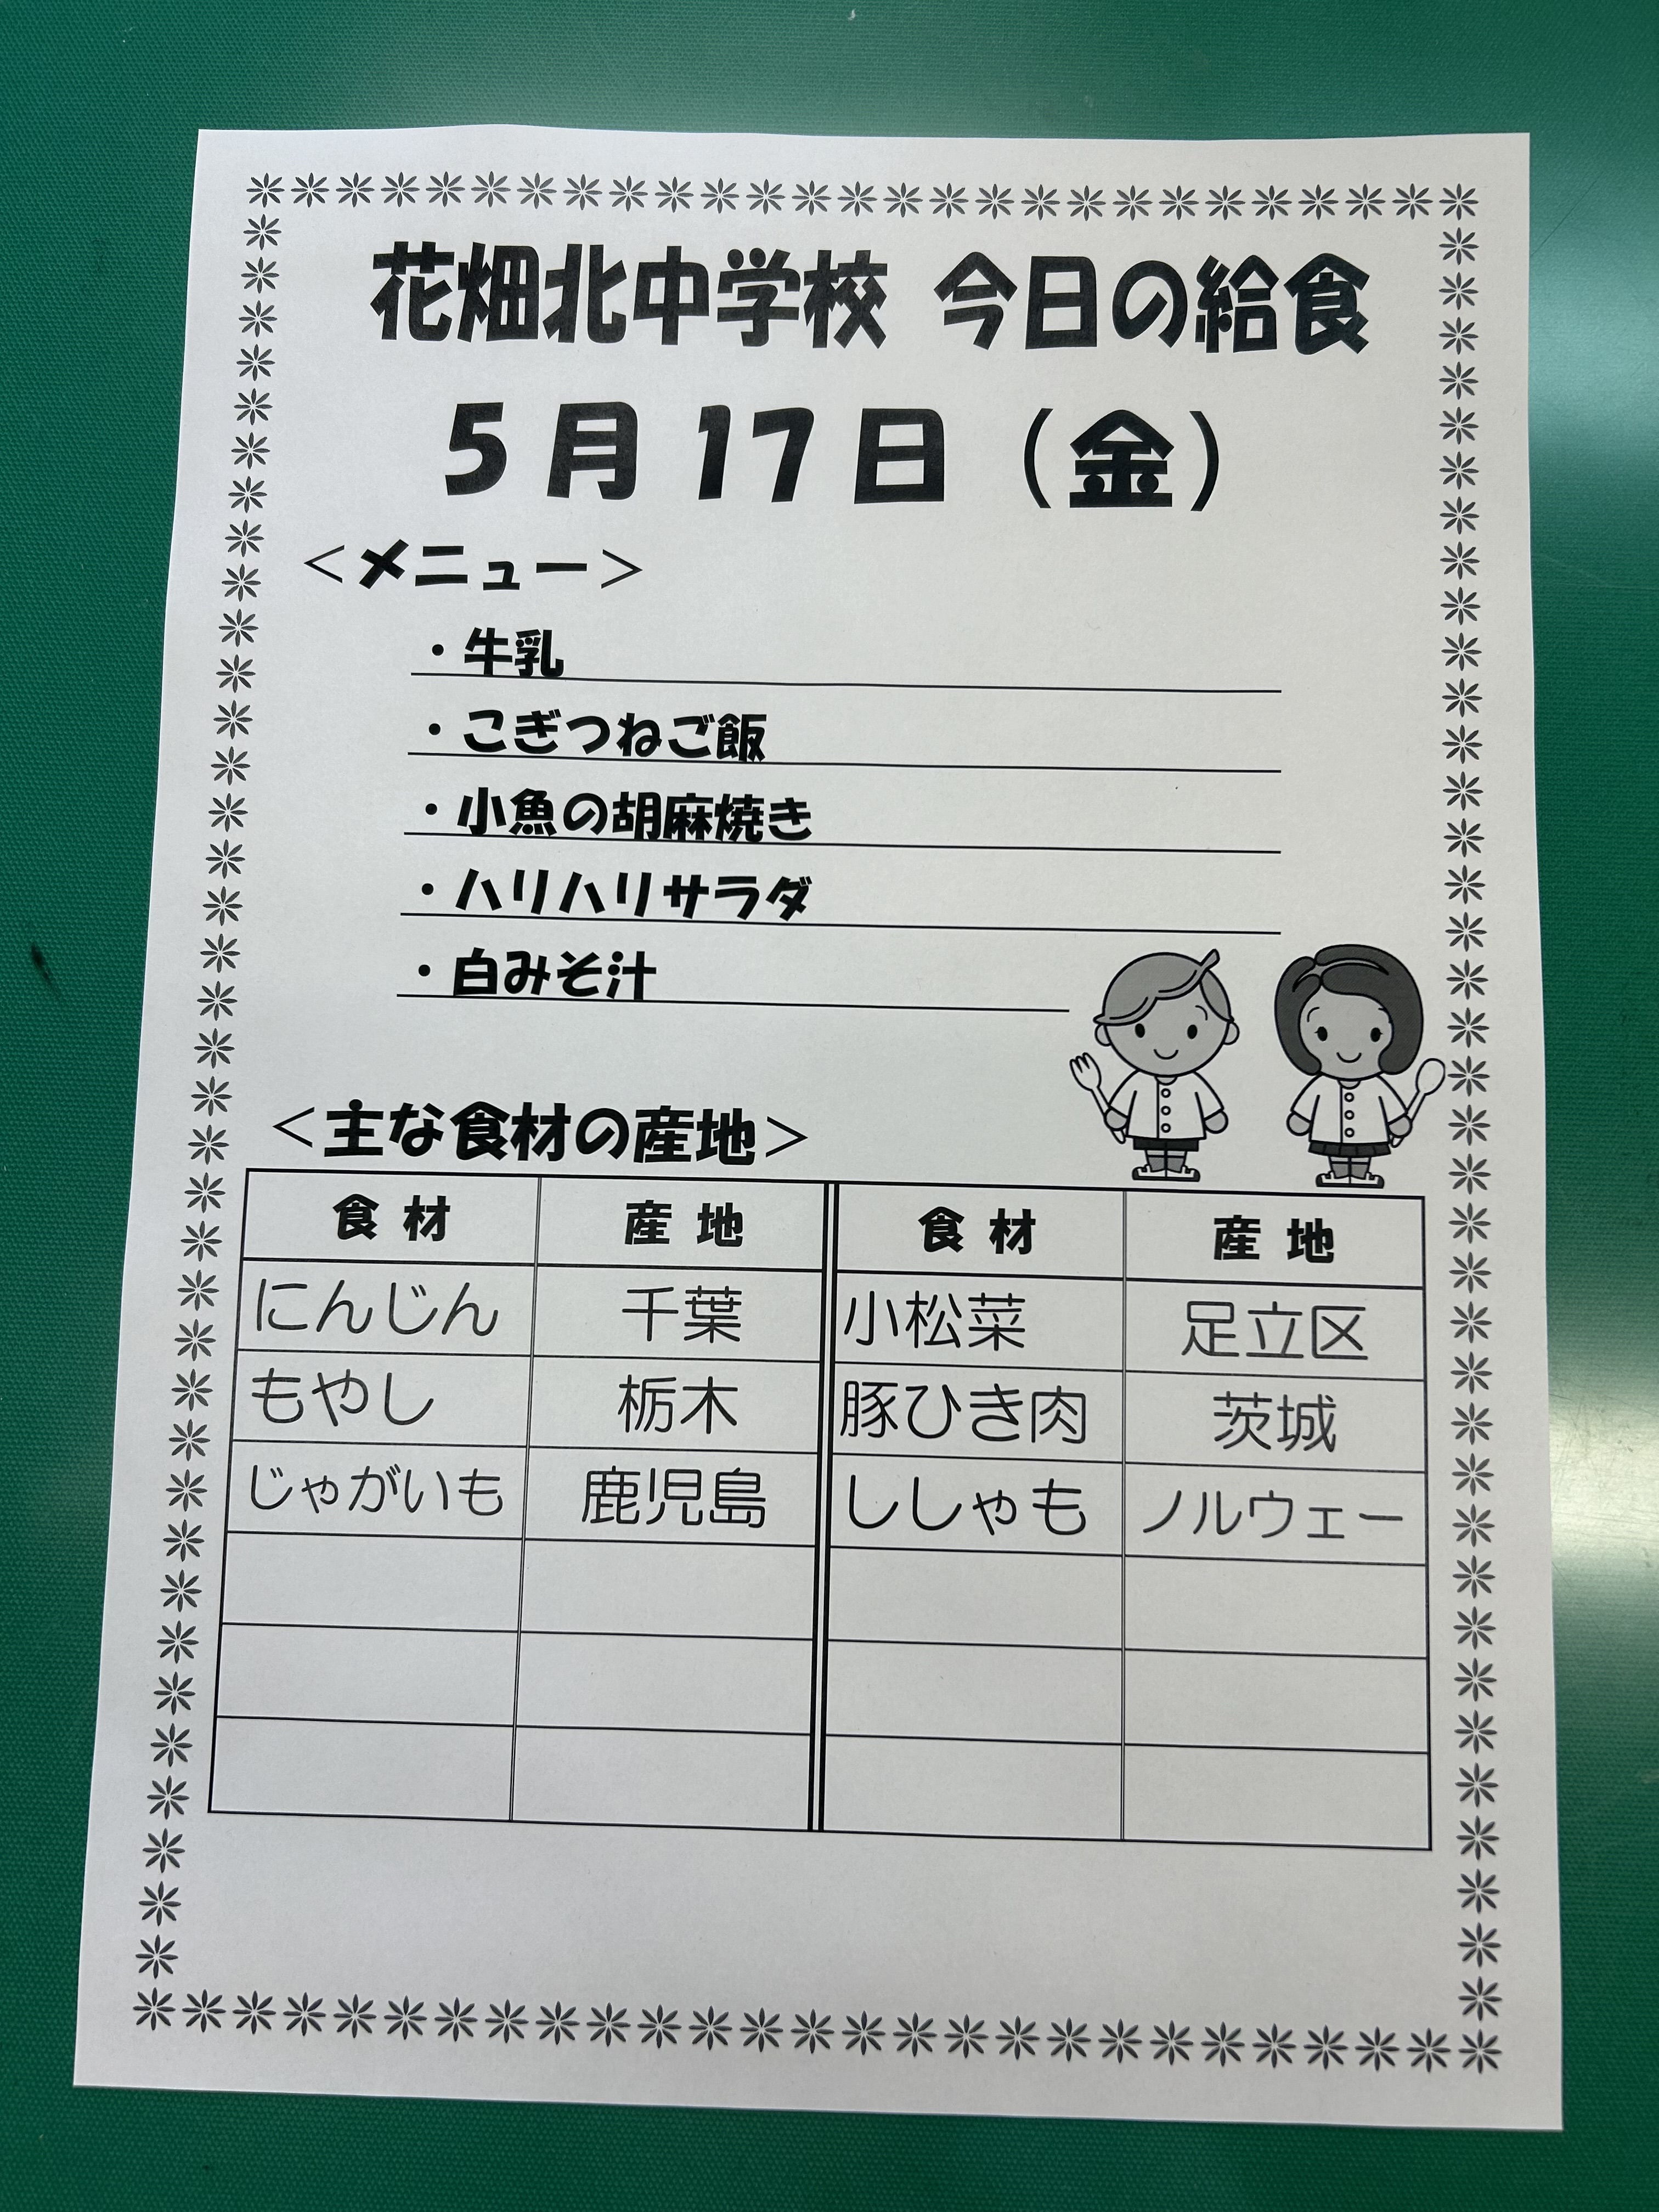 花畑北中学校 今日の給食
5月17日（金）
＜メニュー＞
・牛乳
・こぎつねご飯
・小魚の胡麻焼き
・ハリハリサラダ
・白みそ汁
＜主な食材の産地＞
食材 産地 食材 産地
にんじん 千葉 小松菜 足立区
もやし 栃木 豚ひき肉 茨城
じゃがいも 鹿児島 ししゃも ノルウェー